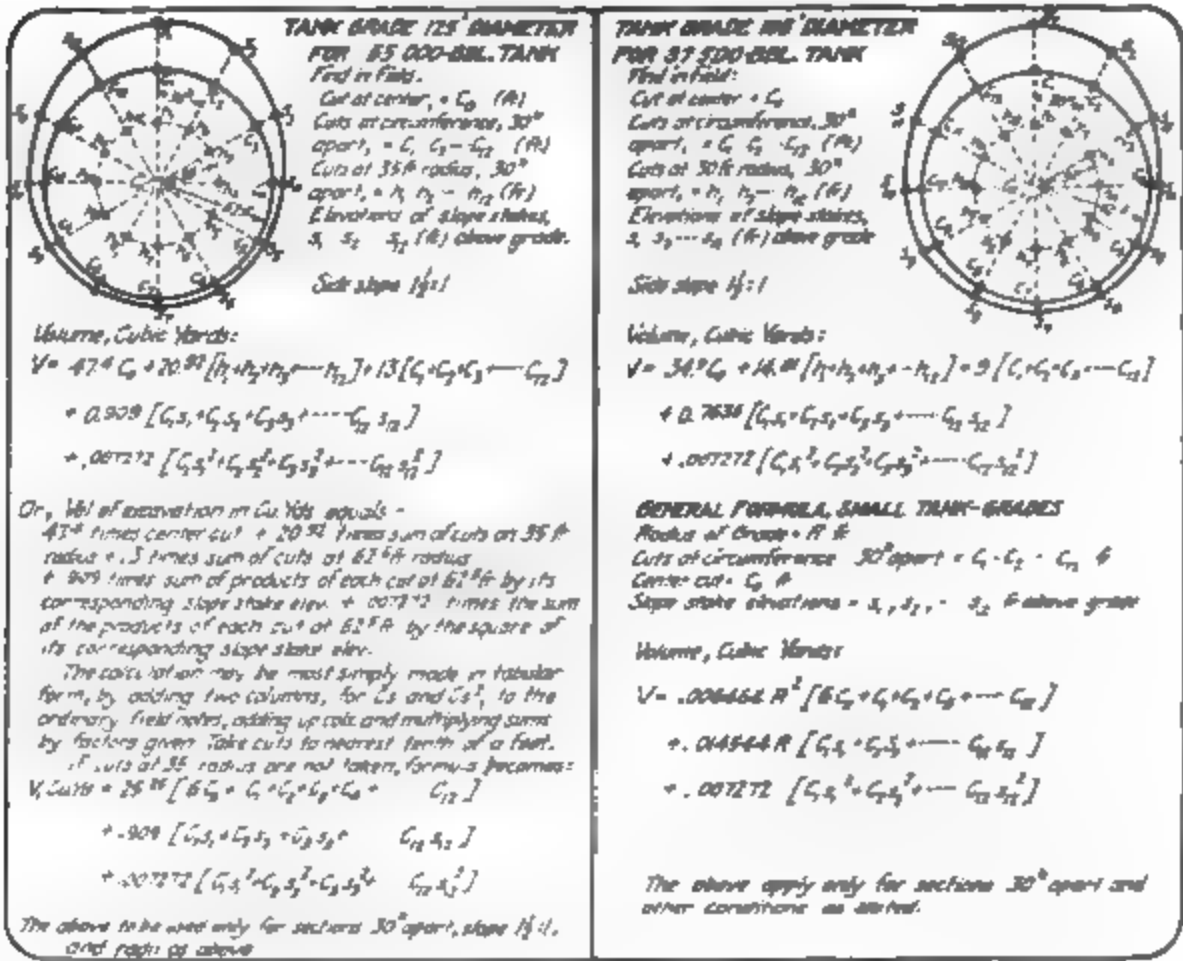 TANK GRADE 125' DIAMETER
FOR 55 000-BBL. TANK
Find in Field.
Cut at center, = C₀ (ft)
Cuts at circumference, 30°
apart, = C₁ C₂ -- C₁₂ (ft)
Cuts at 35 ft radius, 30°
apart, = h₁ h₂ -- h₁₂ (ft)
Elevations of slope stakes,
s₁ s₂ s₁₂ (ft) above grade.
Side slope 1½:1
Volume, Cubic Yards:
V = 47.4 C₀ + 20.⁹² [h₁+h₂+h₃+----h₁₂] + 13 [C₁+C₂+C₃+---- C₁₂]
+ 0.909 [C₁s₁+C₂s₂+C₃s₃+----- C₁₂ s₁₂]
+ .007272 [C₁s₁²+C₂s₂²+C₃s₃²+----C₁₂ s₁₂²]
Or, Vol of excavation in Cu. Yds equals -
47.4 times center cut + 20.92 times sum of cuts on 35 ft
radius + 13 times sum of cuts at 62⁵ ft radius
+ .909 times sum of products of each cut at 62⁵ ft by its
corresponding slope stake elev. + .007272 times the sum
of the products of each cut at 62⁵ ft by the square of
its corresponding slope stake elev.
The calculation may be most simply made in tabular
form, by adding two columns, for Cs and Cs², to the
ordinary field notes, adding up cols. and multiplying sums
by factors given. Take cuts to nearest tenth of a foot.
If cuts at 35 radius are not taken, formula becomes:
V, Cu.Yds = 25.²⁵ [6 C₀ + C₁+C₂+C₃+C₄+ C₁₂]
+ .909 [C₁s₁+C₂s₂+C₃s₃+ C₁₂ s₁₂]
+ .007272 [C₁s₁²+C₂s₂²+C₃s₃²+ C₁₂ s₁₂²]
The above to be used only for sections 30° apart, slope 1½:1,
and radii as above
TANK GRADE DIAMETER
FOR 37 500-BBL. TANK
Find in field:
Cut at center = C₀
Cuts at circumference, 30°
apart, = C₁ C₂ - C₁₂ (ft)
Cuts at 30 ft radius, 30°
apart, = h₁ h₂ -- h₁₂ (ft)
Elevations of slope stakes,
s₁ s₂ --- s₁₂ (ft) above grade
Side slope 1½:1
Volume, Cubic Yards:
V = 34.⁹ C₀ + [h₁+h₂+h₃+--h₁₂] + 9 [C₁+C₂+C₃+---C₁₂]
+ 0.7636 [C₁s₁+C₂s₂+C₃s₃+----- C₁₂ s₁₂]
+ .007272 [C₁s₁²+C₂s₂²+C₃s₃²+----C₁₂ s₁₂²]
GENERAL FORMULA, SMALL TANK-GRADES
Radius of Grade = R ft
Cuts at circumference 30° apart = C₁ - C₂ - C₁₂ ft
Center cut = C₀ ft
Slope stake elevations = s₁, s₂, - s₁₂ ft above grade
Volume, Cubic Yards:
V = .006464 R² [6 C₀ + C₁+C₂+C₃+---- C₁₂]
+ R [C₁s₁+C₂s₂+------ C₁₂ s₁₂]
+ .007272 [C₁s₁²+C₂s₂²+---- C₁₂ s₁₂²]
The above apply only for sections 30° apart and
other conditions as stated.